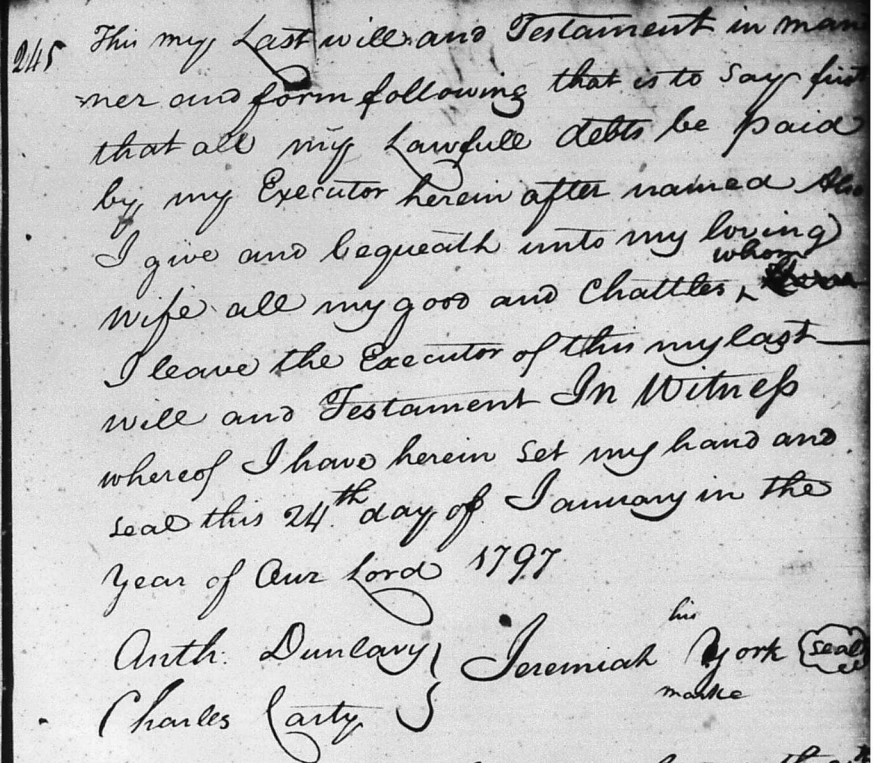 245 This my Last will and Testament in man
ner and form following that is to Say first
that all my Lawfull debts be paid
by my Executor herein after named Also
I give and bequeath unto my loving
whom
wife all my good and Chattles ^
I leave the Executor of this my last
will and Testament In Witness
whereof I have herein Set my hand and
seal this 24th day of January in the
Year of Our Lord 1797
his
Anth. Dunlavy } Jeremiah York seal
marke
Charles Carty